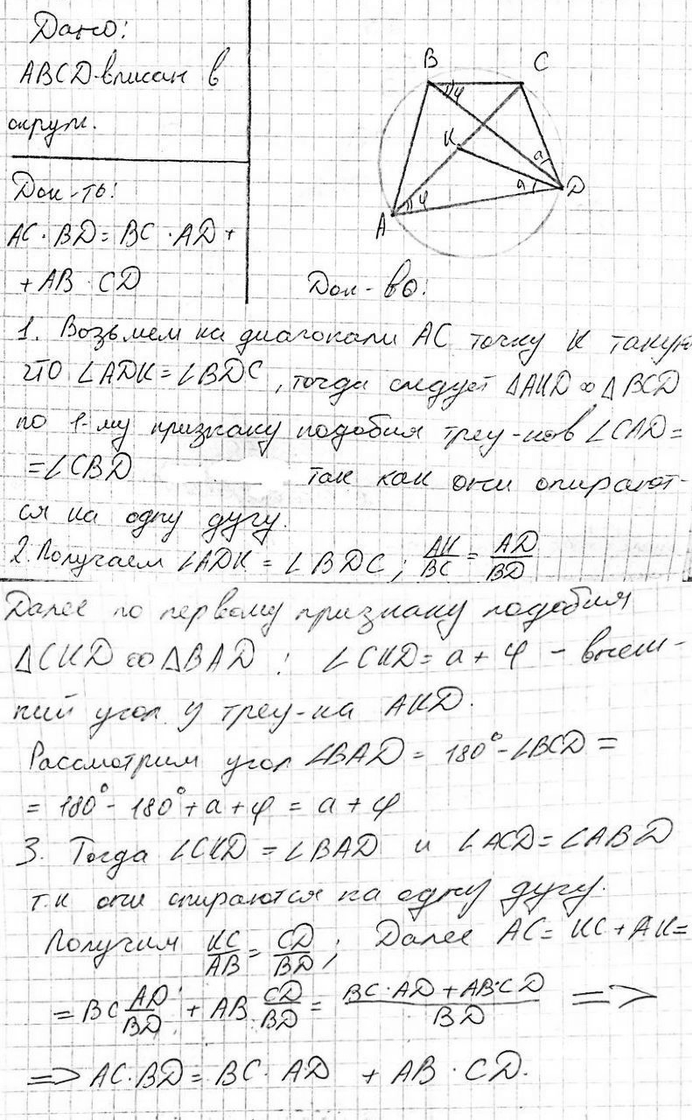 Дано:
ABCD-вписан в
окруж.
Док-ть:
AC·BD=BC·AD+
+AB·CD
B
C
φ
K
a
a
D
φ
A
Док-во:
1. Возьмем на диагонали AC точку K такую
что ∠ADK=∠BDC, тогда следует △AKD∞△BCD
по 1-му признаку подобия треу-ков ∠CAD=
=∠CBD так как они опирают-
ся на одну дугу.
2. Получаем ∠ADK = ∠BDC; AK/BC = AD/BD
Далее по первому признаку подобия
△CKD∞△BAD; ∠CKD=a+φ - внеш-
ний угол у треу-ка AKD.
Рассмотрим угол ∠BAD = 180°-∠BCD =
= 180°-180°+a+φ = a+φ
3. Тогда ∠CKD=∠BAD и ∠ACD=∠ABD
т.к они опираются на одну дугу.
Получим KC/AB = CD/BD; Далее AC=KC+AK=
=BC AD/BD + AB CD/BD = (BC·AD+AB·CD)/BD =>
=> AC·BD=BC·AD + AB·CD.